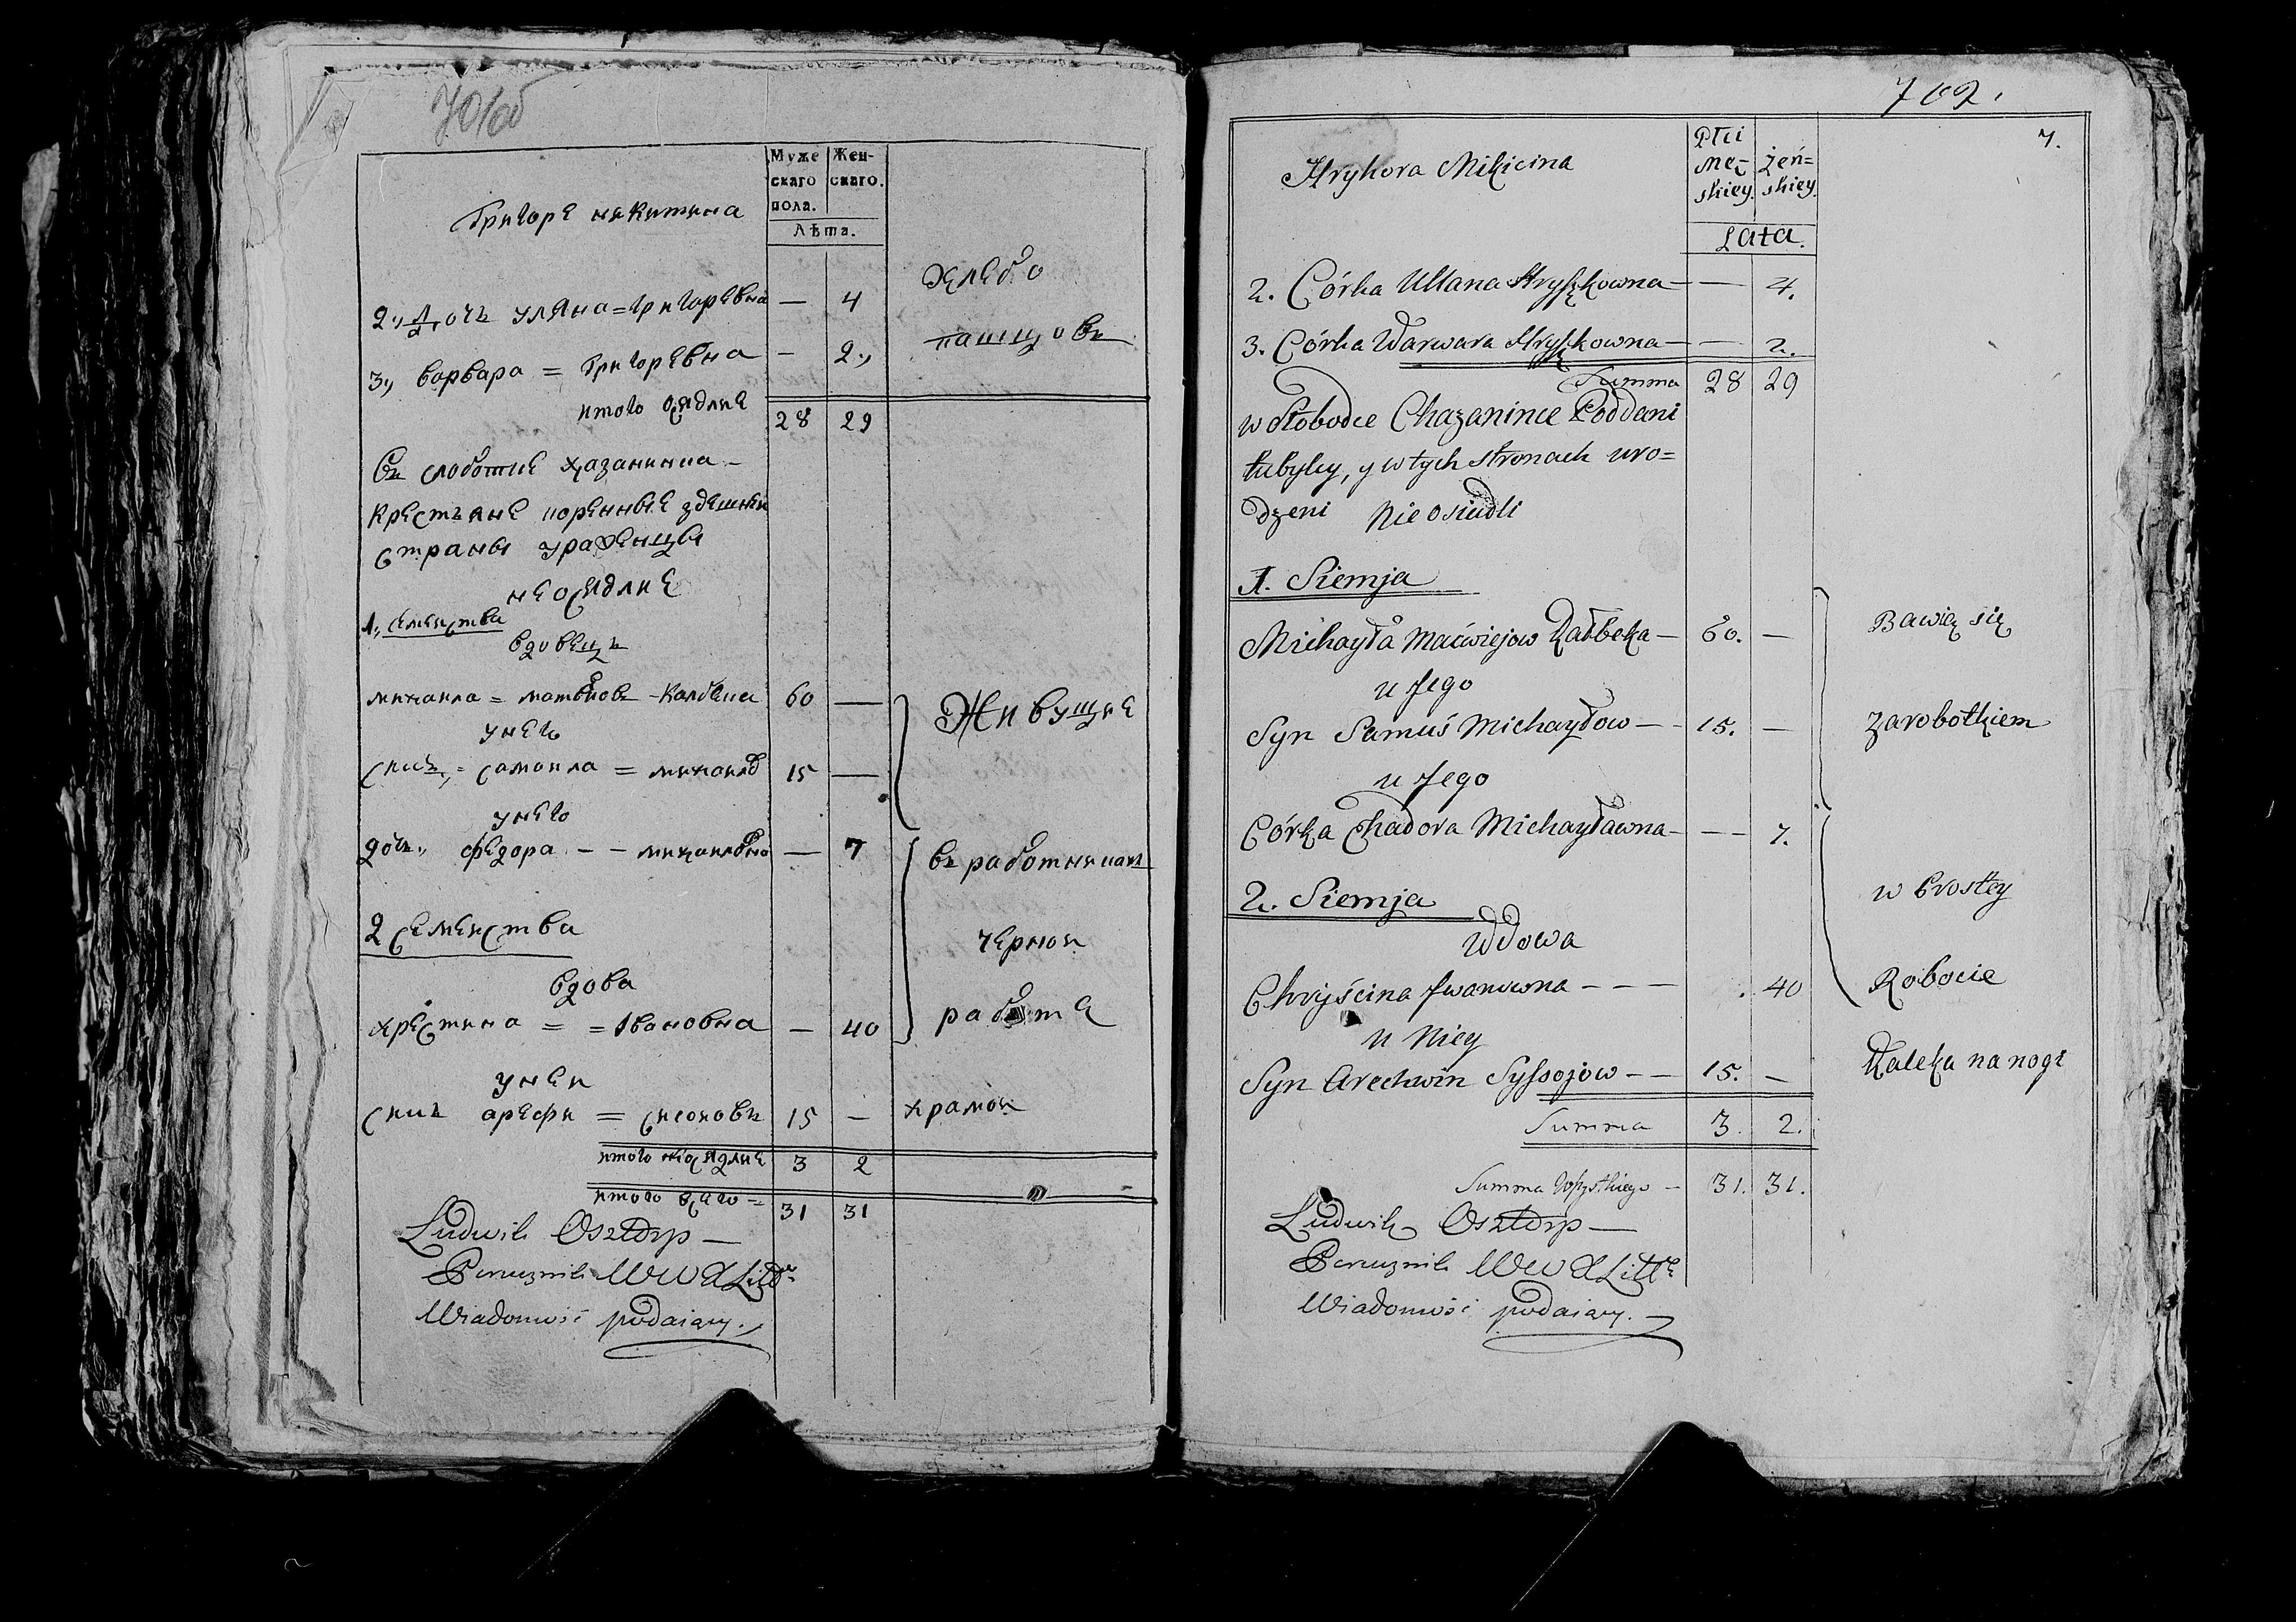 701об
Муже Жен-
скаго скаго.
пола.
Лѣта.
Григоре никитина
2., дочь уляна = григоревна — 4
хлебо
3., варвара = григоревна — 2.,
пашцовъ
итого осядлие 28 29
Въ слоботце хазанинца
крестьяне коренные здешней
страны ураженцы
неосядлие
1., семейства
вдовецъ
михаила = матвиовъ - калбека 60 —
Живущие
унего
синъ, = самоила = михаилов 15 —
унего
дочь., федора - - михаиловна — 7
въ работникахъ
2 семейства
черной
вдова
хрестина = = Ивановна — 40
работе
уней
синъ арефи = сисоновъ 15 — храмой
итого неосядлие 3 2
итого всего = 31 31
Ludwik Osztorp —
Porucznik WWXLitt
Wiadomość podaiący.
702.
7.
Płci
mę- żeń=
skiey. skiey.
Lata.
Hryhora Mikicina
2. Córka Ullana Hryszkowna — — 4.
3. Córka Warwara Hryszkowna — — 2.
Summa 28 29
w Słobodce Chazanince Poddani
tubylcy, y w tych stronach uro=
dzeni Nie osiadli
1. Siemja
Michayła Maćwiejow Kałbeka — 60. —
Bawię się
u Jego
Syn Samuś Michayłow — — 15. —
zarobotkiem
u Jego
Córka Chadora Michayławna — — 7.
2. Siemja
w Prostey
Wdowa
Chryścina Iwanowna - - - . 40
Robocie
u Niey
Syn Arechwin Syssojow — — 15. —
Kaleka na nogę
Summa 3. 2.
Summa Wszystkiego — 31. 31.
Ludwik Osztorp —
Porucznik WWXLitt
Wiadomość podaiący. —